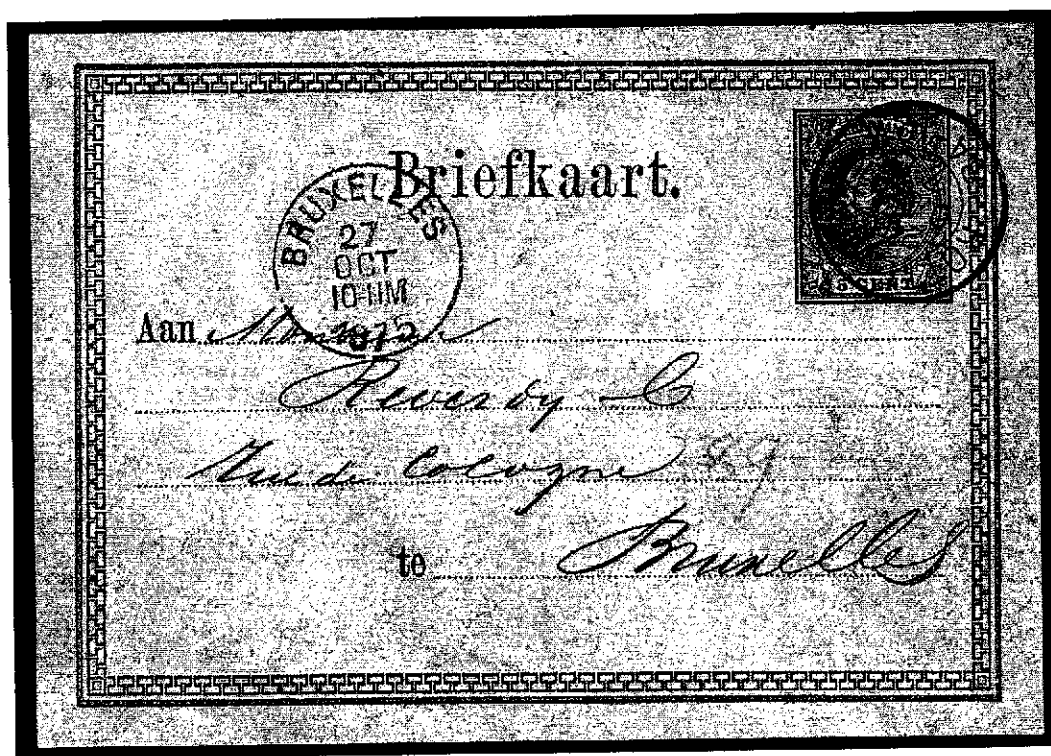 Briefkaart.
BRUXELLES
27
OCT
10-11M
1872
5 CENT
Aan Monsieur
Reverdy
Rue de Cologne 89
te Bruxelles